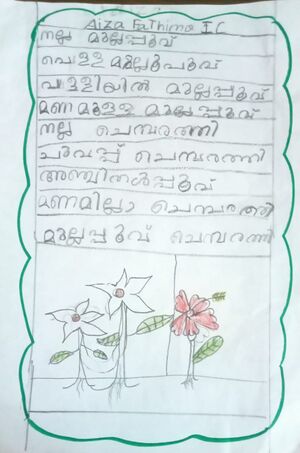 Aiza Fathima I C
നല്ല മുല്ലപ്പൂവ്
വെള്ള മുല്ലപ്പൂവ്
വള്ളിയിൽ മുല്ലപ്പൂവ്
മണമുള്ള മുല്ലപ്പൂവ്
നല്ല ചെമ്പരത്തി
ചുവപ്പ് ചെമ്പരത്തി
അഞ്ചിതൾപ്പൂവ്
മണമില്ലാ ചെമ്പരത്തി
മുല്ലപ്പൂവ് ചെമ്പരത്തി